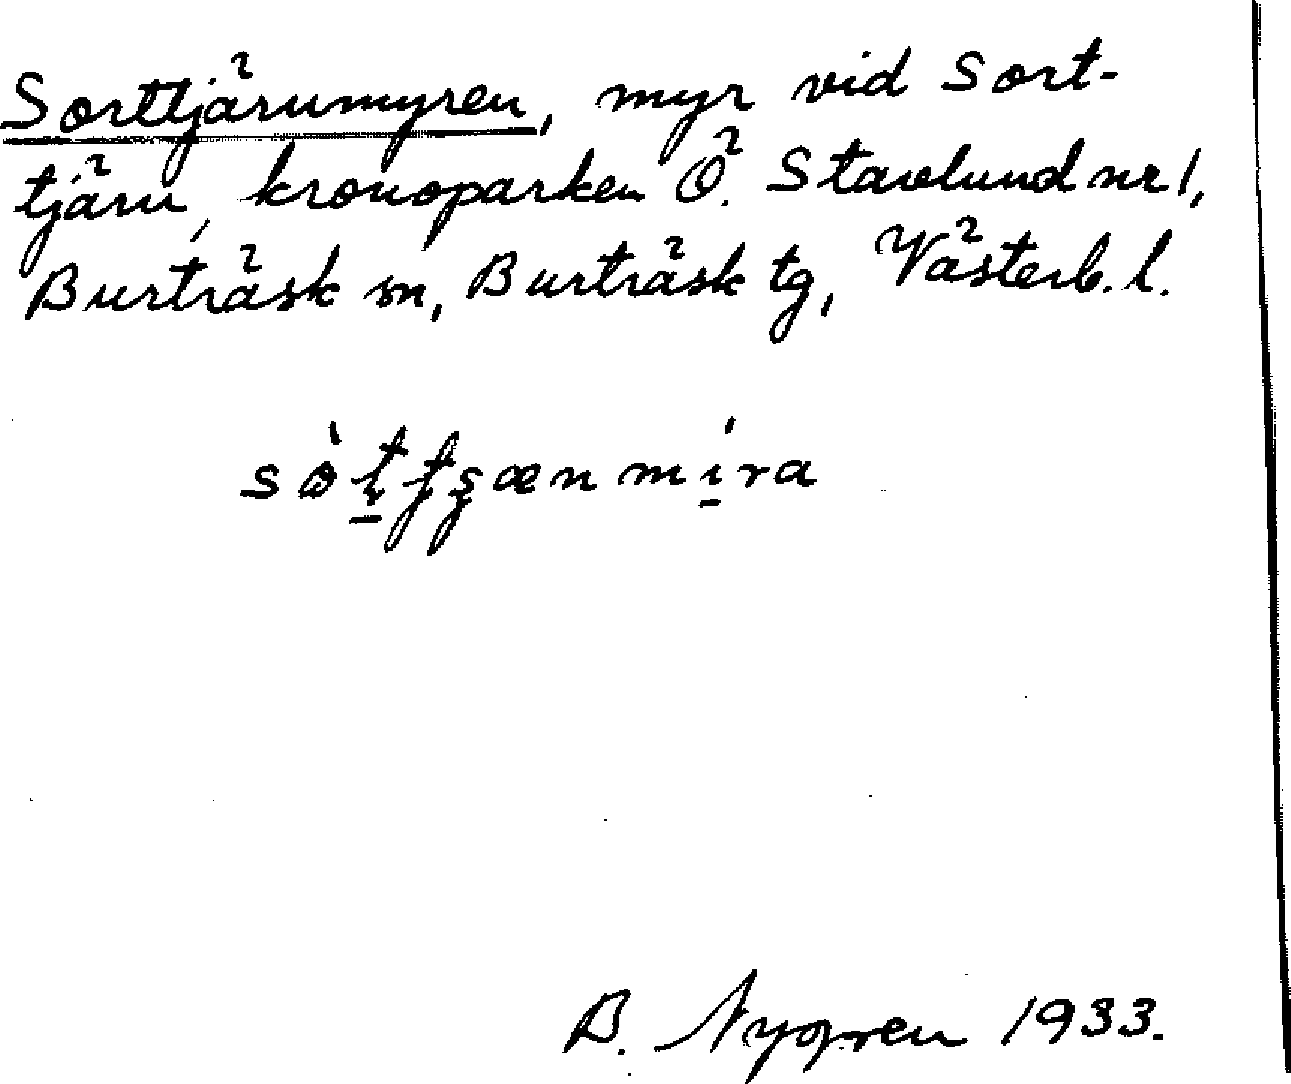 Sorttjärnmyren, myr vid Sort-
tjärn, kronoparken Ö. Stavlund nr 1,
Burträsk sn, Burträsk tg, Västerb. l.
B. Nygren 1933.